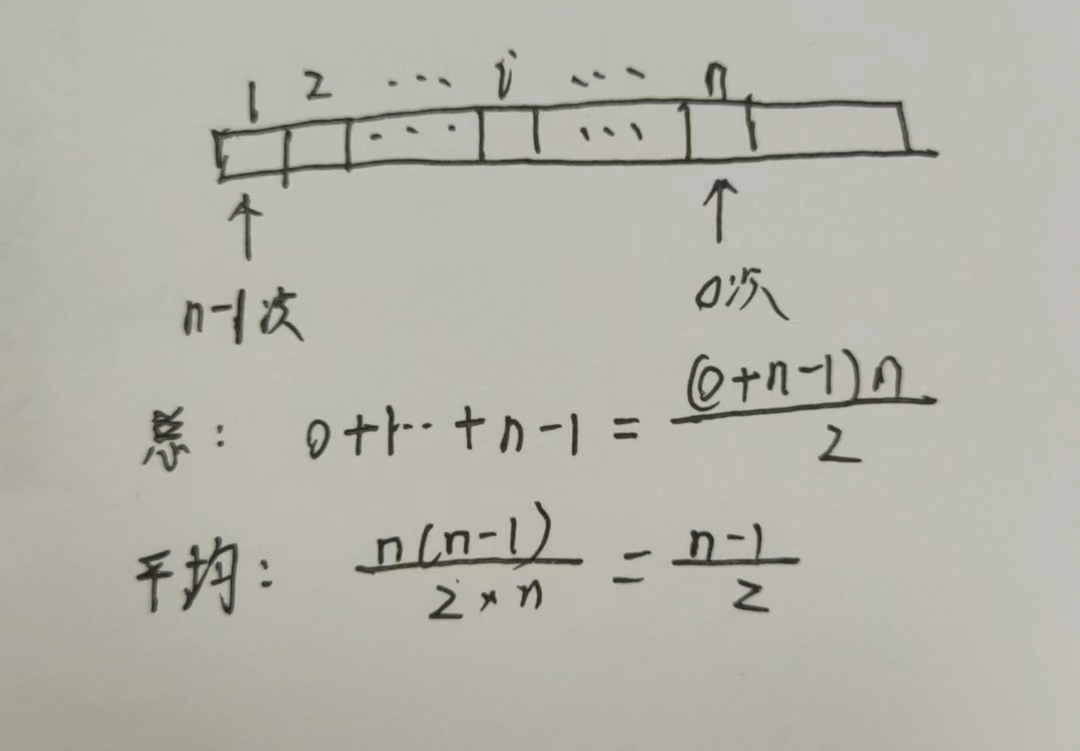 1 2 ... i ... n
... ...
↑ ↑
n-1次 0次
总: 0+1…+n-1 = (0+n-1)n/2
平均: n(n-1)/2×n = n-1/2